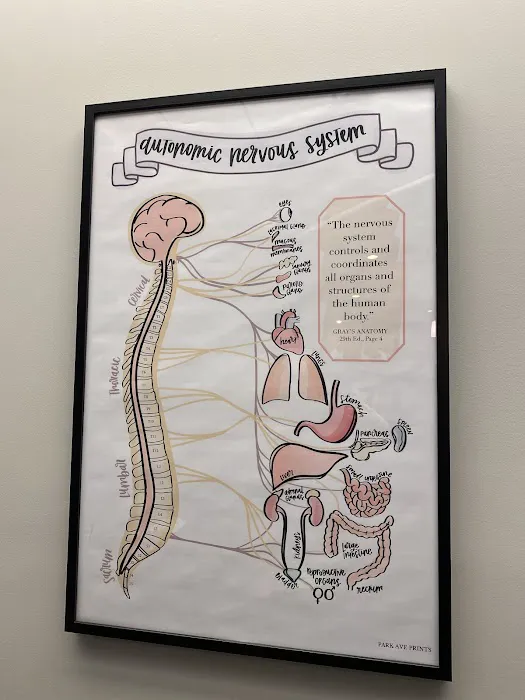 autonomic nervous system
eyes
lacrimal gland
mucous
membranes
salivary
glands
parotid
gland
"The nervous
system
controls and
coordinates
all organs and
structures of
the human
body."
GRAY'S ANATOMY
29th Ed., Page 4
cervical
heart
lungs
thoracic
stomach
pancreas
spleen
liver
small intestine
lumbar
adrenal
glands
kidneys
large
intestine
sacrum
bladder
reproductive
organs
rectum
PARK AVE PRINTS